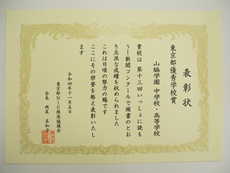 表彰状
東京都優秀学校賞
山脇学園 中学校・高等学校
貴校は第十三回いっしょに読も
う！新聞コンクールで頭書のとお
り立派な成績を収められました
これは日頃の努力の賜です
ここにその栄誉を称え表彰いたし
ます
令和四年十一月五日
東京都ＮＩＥ推進協議会
会長